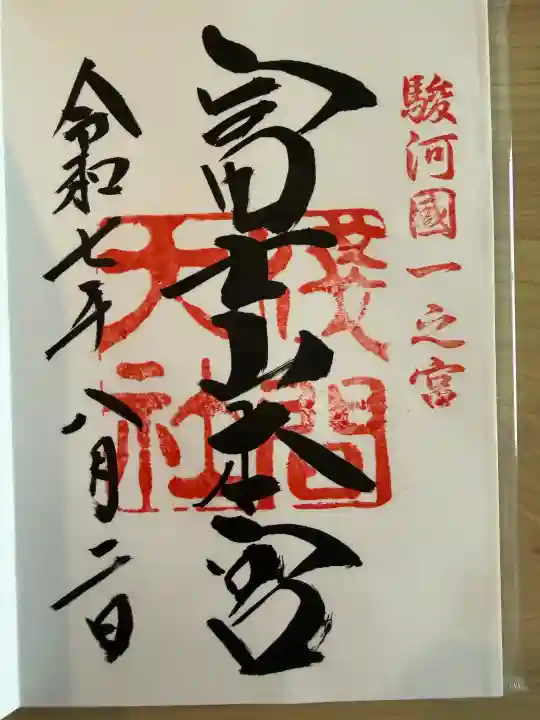 駿河國一之宮
富士山本宮
淺間
大社
令和七年八月二日